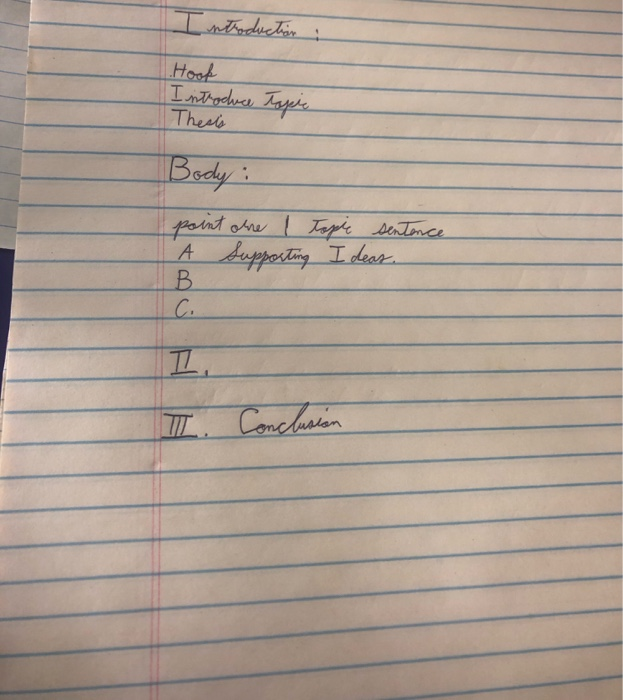 Introduction :
Hook
Introduce Topic
Thesis
Body :
point one | topic sentence
A Supporting Ideas.
B
C.
II.
III. Conclusion